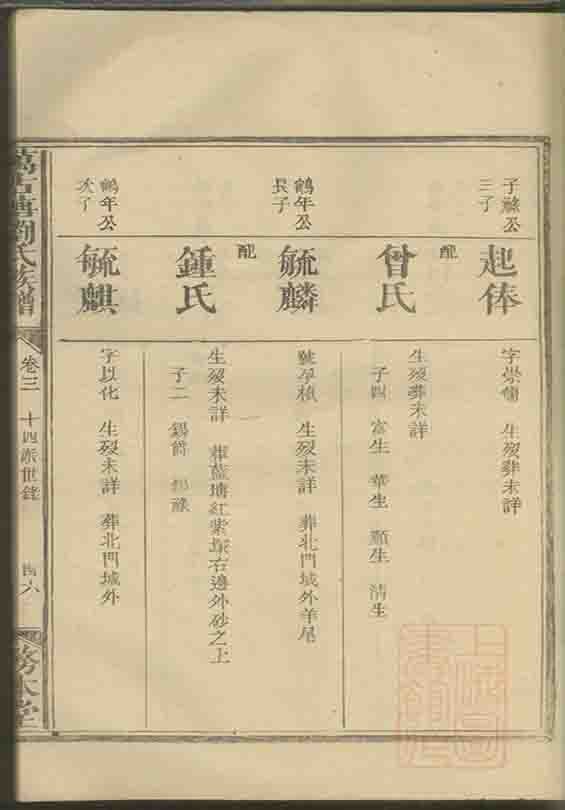 子聽公
三子
起俸
字崇儒 生歿葬未詳
配
曾氏
生歿葬未詳
子四 富生 華生 顯生 清生
鶴年公
長子
毓麟
生歿未詳 葬北門城外羊尾
配
鍾氏
生歿未詳 葬藍塘紅紫塅右邊外砂之上
子二 錫爵
鶴年公
次子
毓麒
字以化 生歿未詳 葬北門城外
萬古塘劉氏族譜
卷三 十四派世錄
四六
務本堂